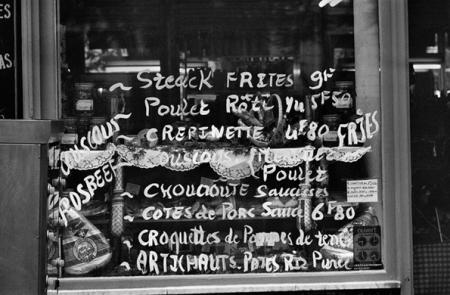 Steack FRITES 9F
Poulet Rôti 5F50
CREPINETTE 4F80 FRITES
COUSCOUS
ROSBEEF
COUSCOUS
Poulet
CHOUCROUTE Saucisses
COTES de Porc Sauce 6F80
CROquettes de Pommes de terre
ARTICHAUTS. Pates Riz Puree